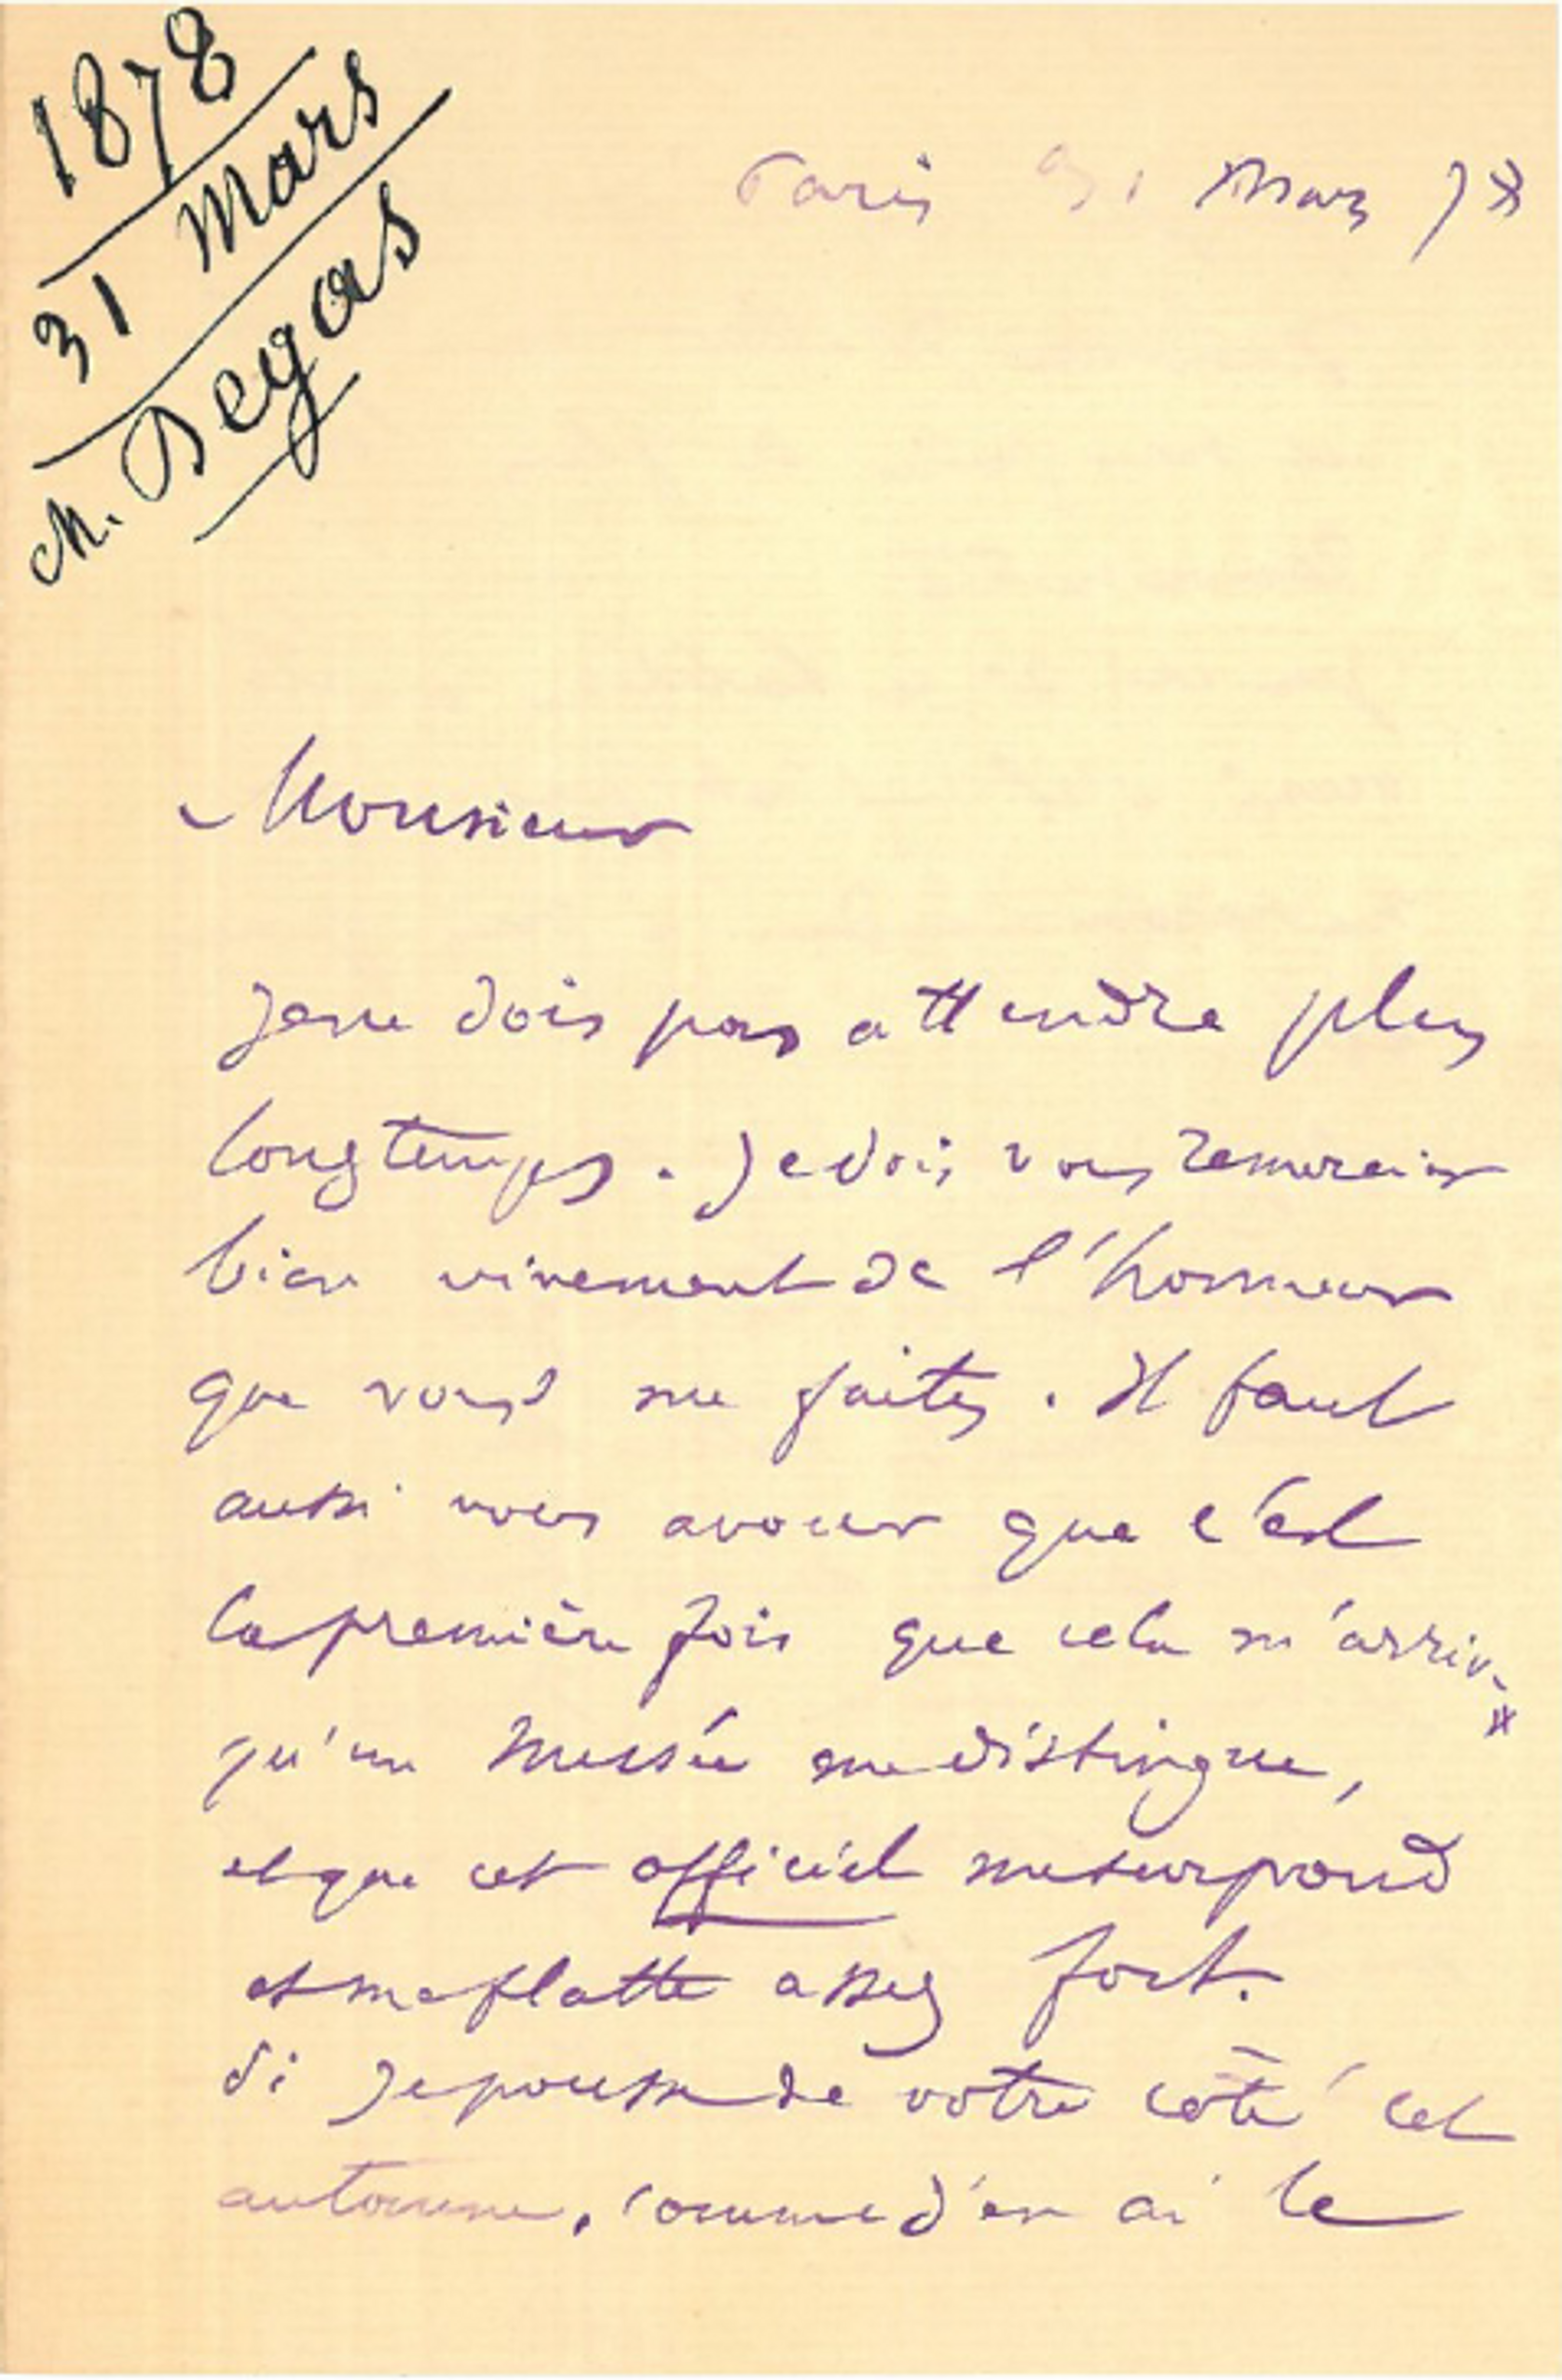 1878
31 Mars
M. Degas
Paris 31 Mars 78
Monsieur
Je ne dois pas attendre plus
longtemps. Je dois vous remercier
bien vivement de l'honneur
que vous me faites. Il faut
aussi vous avouer que c'est
la première fois que cela m'arrive
qu'un Musée me distingue,
et que cet officiel me surprend
et me flatte assez fort.
Si je pousse de votre côté cet
automne, comme j'en ai le